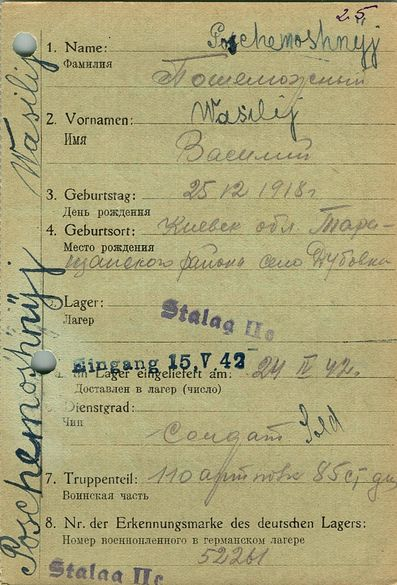 25
1. Name: Poschemoshnyj
Фамилия Пошеможный
2. Vornamen: Wasilij
Имя Василий
3. Geburtstag: 25 12 1918г
День рождения
4. Geburtsort: Киевск обл. Тара-
Место рождения щанского района село Дубовка
5. Lager: Stalag IIc
Лагер
Eingang 15. V 42
im Lager eingeliefert am: 24 IV 42.
Доставлен в лагер (число)
6. Dienstgrad: Sold
Чин солдат
7. Truppenteil: 110 85 ст. див
Воинская часть
8. Nr. der Erkennungsmarke des deutschen Lagers:
Номер военнопленного в германском лагере
52261
Stalag IIc
Poschemoshnyj Wasilij